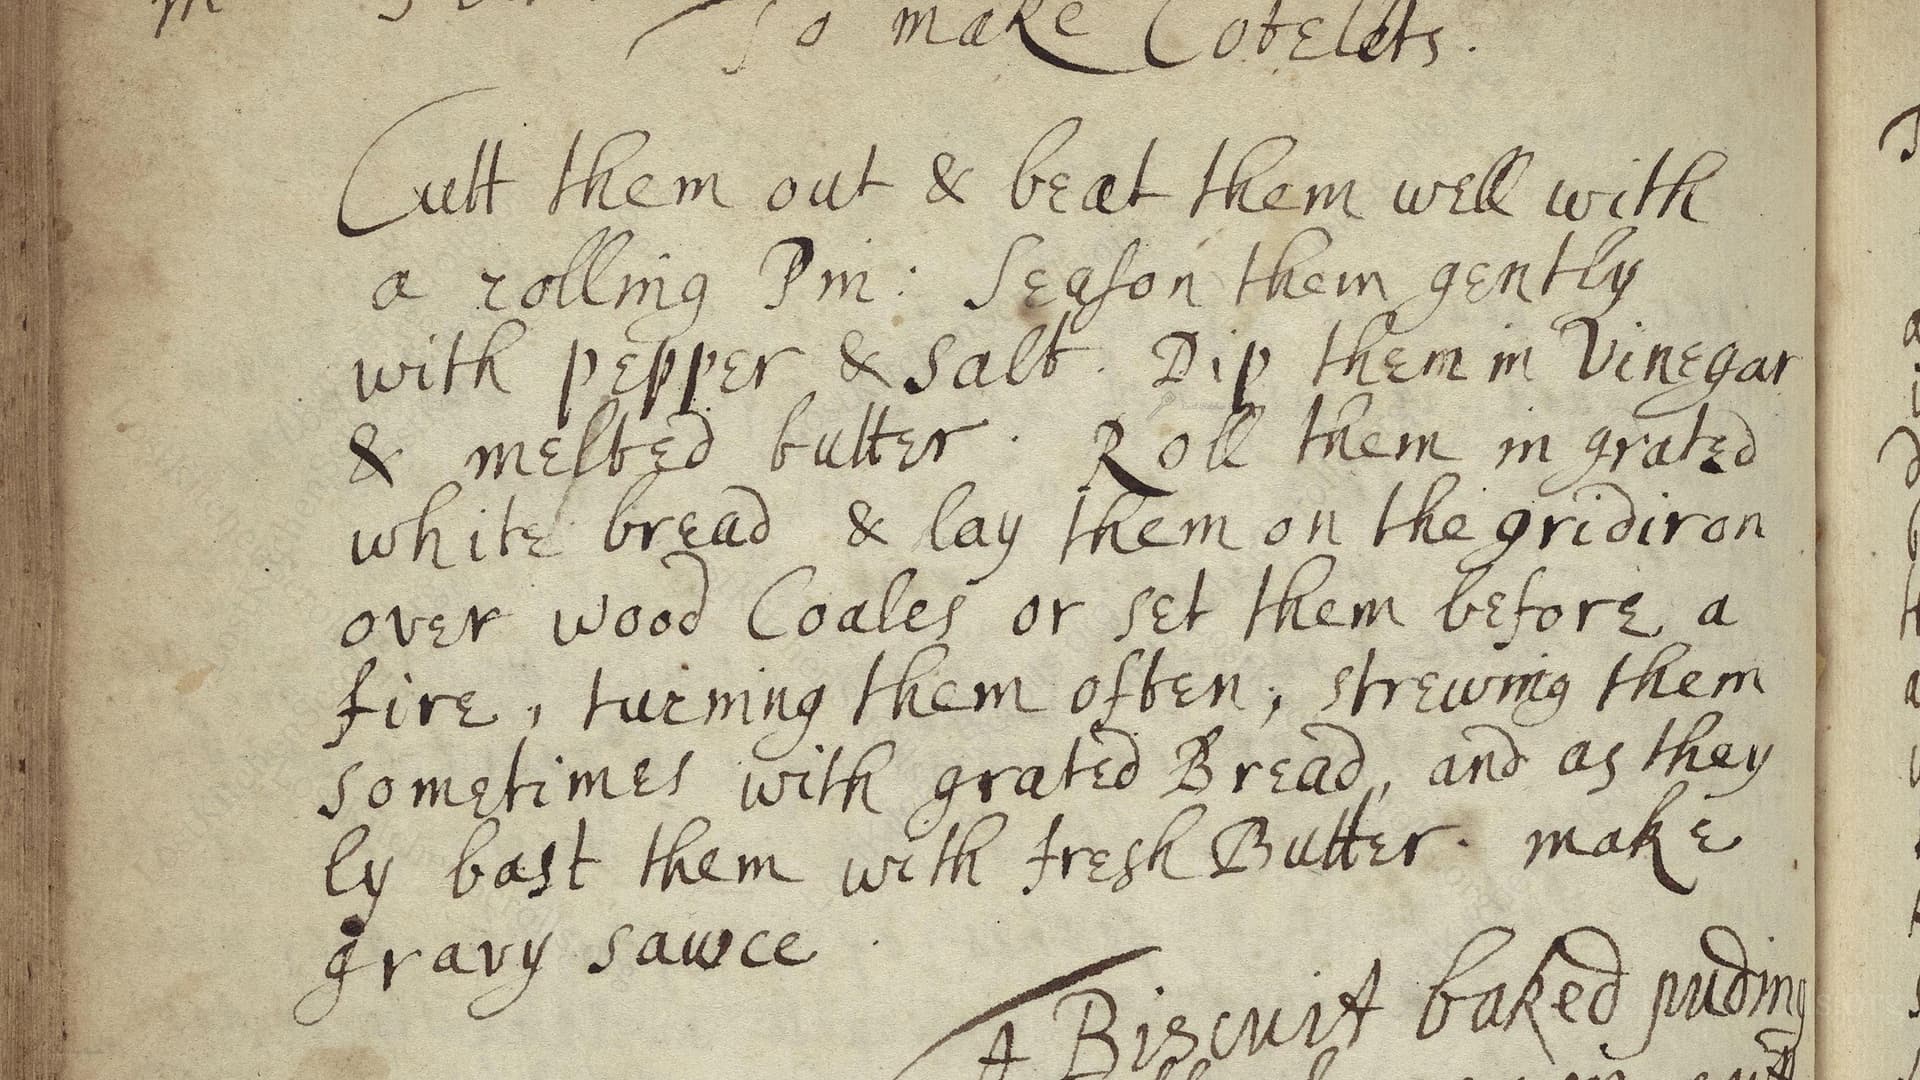 To make Cotelets.
Cutt them out & beat them well with
a rolling Pin: Season them gently
with pepper & salt. Dip them in Vinegar
& melted butter. Roll them in grated
white bread & lay them on the gridiron
over wood Coales or set them before a
fire, turning them often, strewing them
sometimes with grated Bread, and as they
ly bast them with fresh Butter. make
gravy sawce.
A Biscuit baked puding